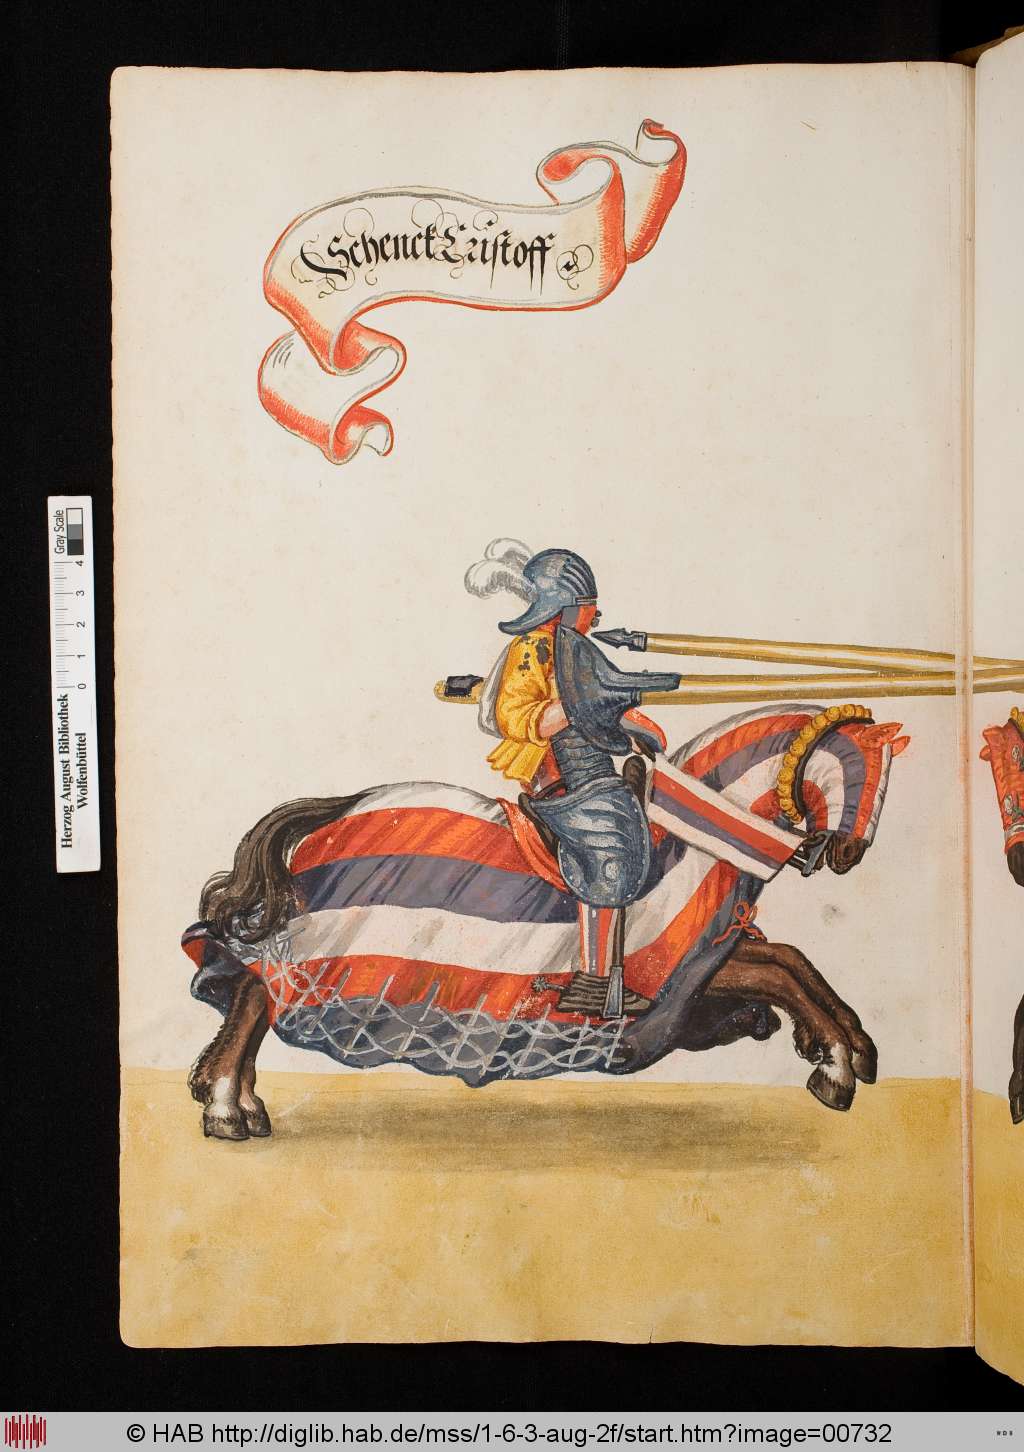 Schenck Cristoff
Gray Scale
0 1 2 3 4
Herzog August Bibliothek
Wolfenbüttel
© HAB http://diglib.hab.de/mss/1-6-3-aug-2f/start.htm?image=00732